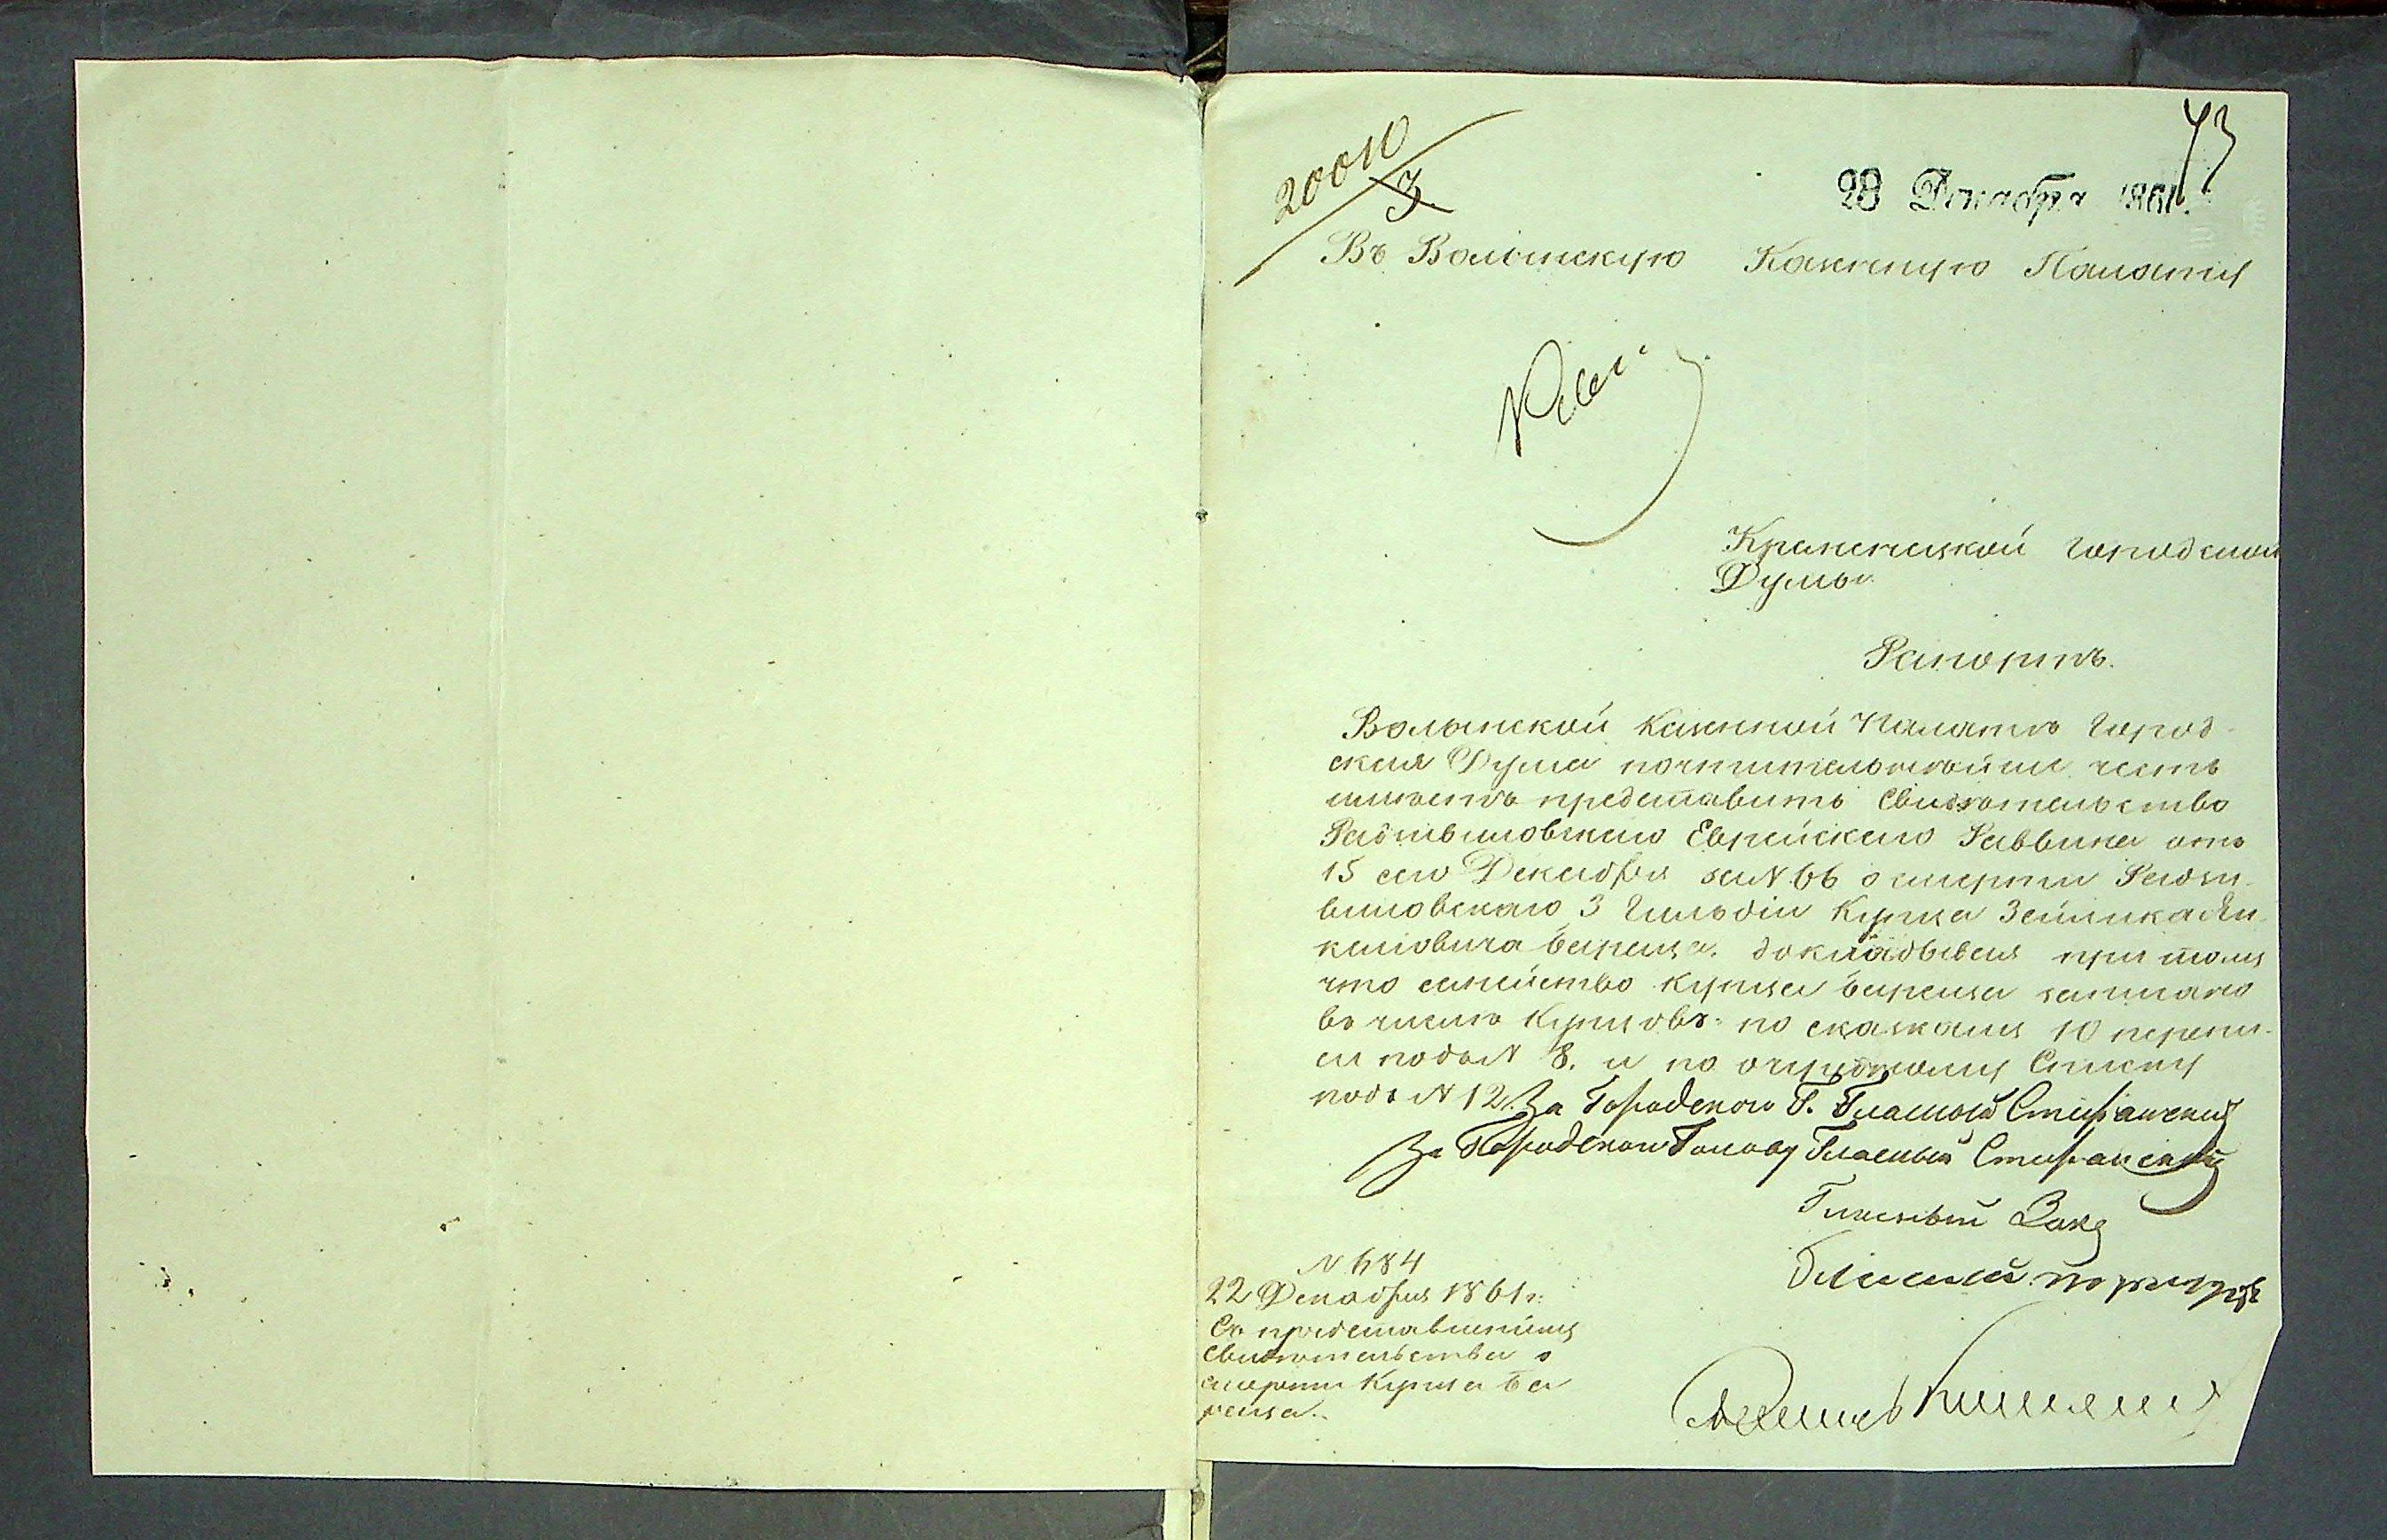 73
20010
3
28 Декабря 1861.
Въ Волынскую Казенную Палату
Кременецкой городской
Думы
Рапортъ.
Волынской Казенной Палатѣ Город-
ская Дума почтительнѣйше честь
имѣетъ представить Свидѣтельство
Радзивиловскаго Еврейскаго Раввина отъ
15 сего Декабря за N 66 о смерти Радзи-
виловскаго 3 Гильдіи Купца Зейлика Ян-
келіовича Баренца. докладывая при томъ
что семейство Купца Баренца записано
въ число Купцовъ по сказкамъ 10 перепи-
си подъ N 8. и по очередному Списку
подъ N 12. За Городскаго Г. Гласный
За Городскаго Голову Гласный
Гласный Закс
Гласный
N 684
22 Декабря 1861 г.
Съ представленіемъ
Свидѣтельства о
смерти Купца Ба
ренца.